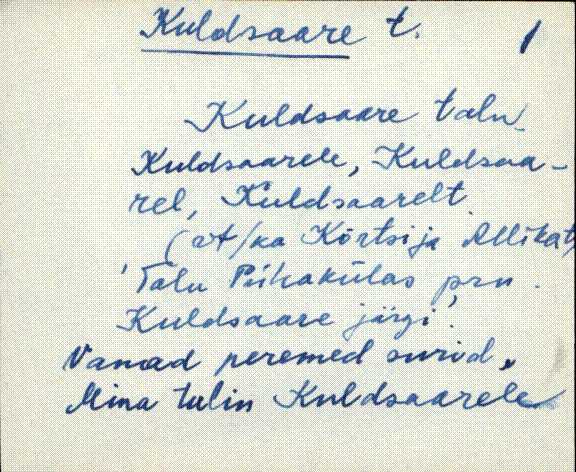 Kuldsaare t. 1
Kuldsaare talu
Kuldsaarele, Kuldsaa-
rel, Kuldsaarelt
(vt/ka Kõrtsi ja Allikat)
'Talu Pihakülas prn.
Kuldsaare järgi'.
Vanad peremed surid,
Mina tulin Kuldsaarele